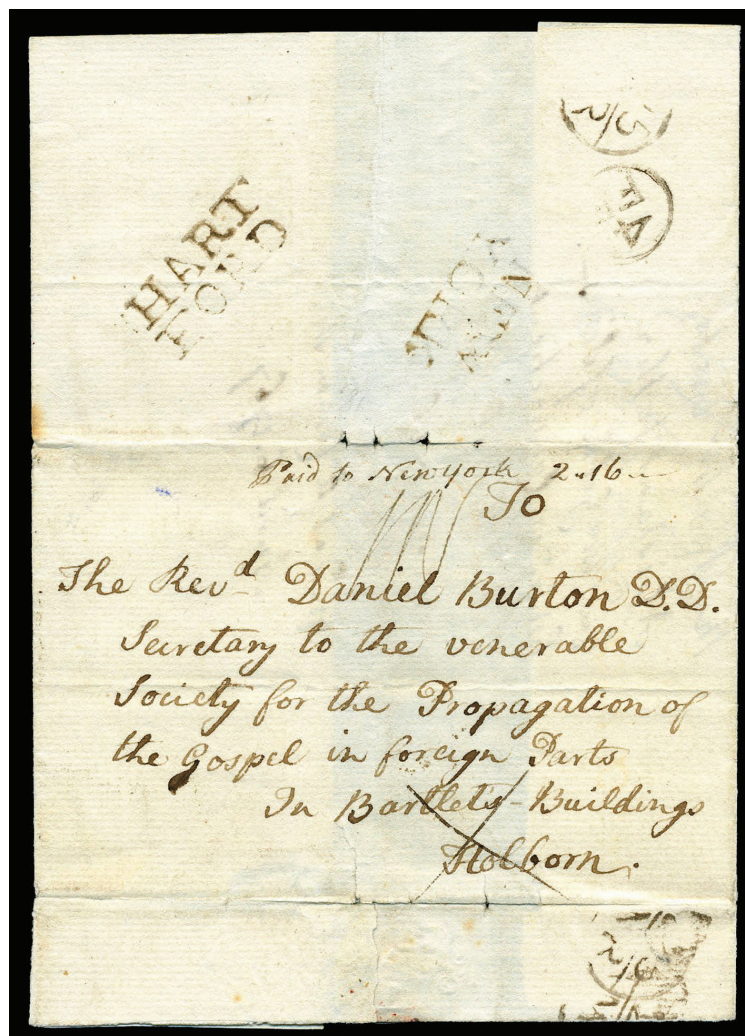 HART
FORD
NEW
YORK
Paid to New York 2..16
To
The Revd Daniel Burton D.D.
Secretary to the venerable
Society for the Propagation of
the Gospel in foreign Parts
In Bartlet's-Buildings
Holborn.